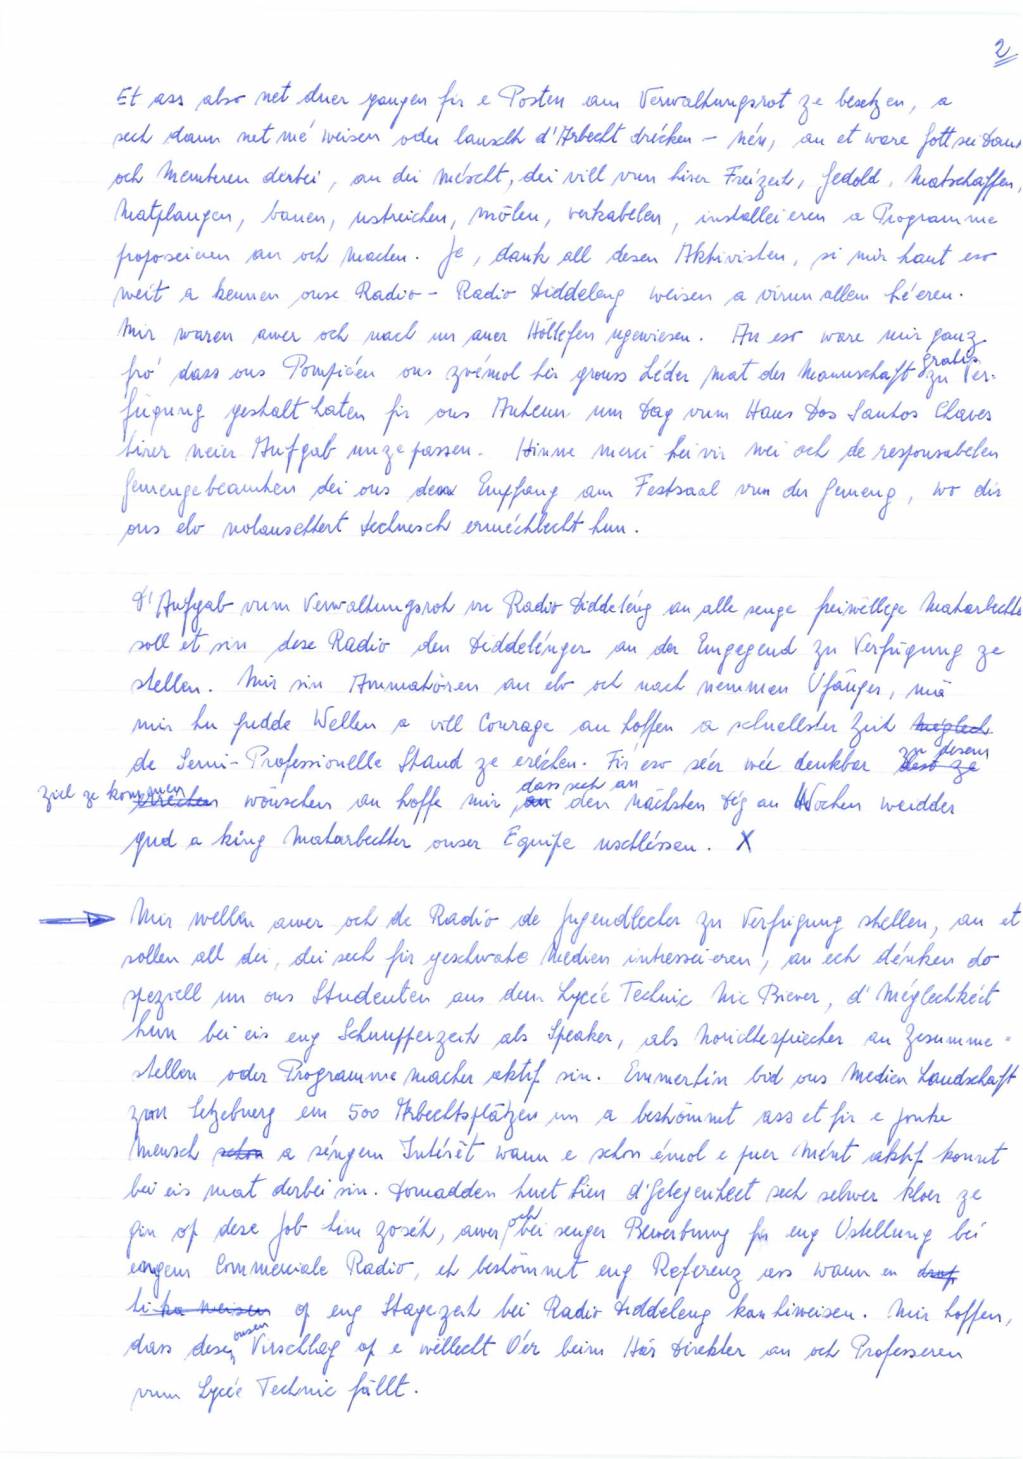 2
Et ass also net duer gangen fir e Posten am Verwaltungsrot ze besetzen, a
sech dann net mé weisen oder lauscht d'Arbecht drécken – nén, an et ware Gott sei Dank
och Memberen derbei, an dei méscht, dei vill vun hirer Freizeit, Gedold, Matschaffen,
Matplangen, bauen, ustreichen, mölen, verkabelen, installeieren a Programme
proposeieren an och machen. Je, dank all desen Aktivisten, si mir haut eso
weit a kennen onse Radio – Radio Diddeleng weisen a virun allem héeren.
Mir waren awer och nach un aner Höllefen ugewiesen. An eso ware mir ganz
fró dass ons Pompiéen ons zwémol hir grouss Léder mat der Manuschaft gratis zu Ver-
fügung gestallt haten fir ons Antenn um Dag vum Haus Dos Santos Chaves
hirer neier Aufgab unzepassen. Hinne merci heivir wei och de responsabelen
Gemengebeamten dei ons den Empfang am Festsaal vun der Gemeng, wo dir
ons elo nolauschtert technesch erméchlecht hun.
D'Aufgab vum Verwaltungsrot vu Radio Diddeléng an alle senge freiwëllege Matarbechter
soll et sin dese Radio den Diddelénger an der Emgegend zu Verfügung ze
stellen. Mir sin Ammatören an elo och nach nemmen Ufänger, mä
mir hu gudde Wellen a vill Courage an hoffen a schnellster Zeit meglech
de Semi-Professionelle Stand ze eréchen. Fir eso séer wéi denkbar zu desem
Ziel ze kommen wönschen an hoffe mir dass sech an den nächsten Dég an Wochen weider
gud a king Matarbechter onser Equipe uschléssen. X
Mir wellen awer och de Radio de Jugendlecher zu Verfügung stellen, an et
sollen all dei, dei sech fir geschwate Medien intresseieren, an ech dénken do
speziell un ons Studenten aus dem Lycée Technic Nic Biever, d'Méglechkéit
hun bei eis eng Schnupperzeit als Speaker, als Norichtespriecher an Zesumme-
stellen oder Programme macher aktif sin. Emmerhin bid ons Medien Landschaft
zu Letzebuerg em 500 Arbechtsplätzen un a bestömmt ass et fir e jonke
Mensch schon a séngem Intérêt wann e schon émol e puer Mént aktif konnt
bei eis mat derbei sin. Domadden huet hien d'Gelegenheet sech selwer kloer ze
gin op dese Job him zosét, awer och bei senger Bewerbung fir eng Ustellung bei
engem Commerciale Radio, et bestömmt eng Referenz ass wann en
op eng Stagezeit bei Radio Diddeleng kan hiweisen. Mir hoffen,
dass desen onsen Virschlag op e wëllecht O'er beim Här Direkter an och Professeren
vum Lycée Technic fällt.